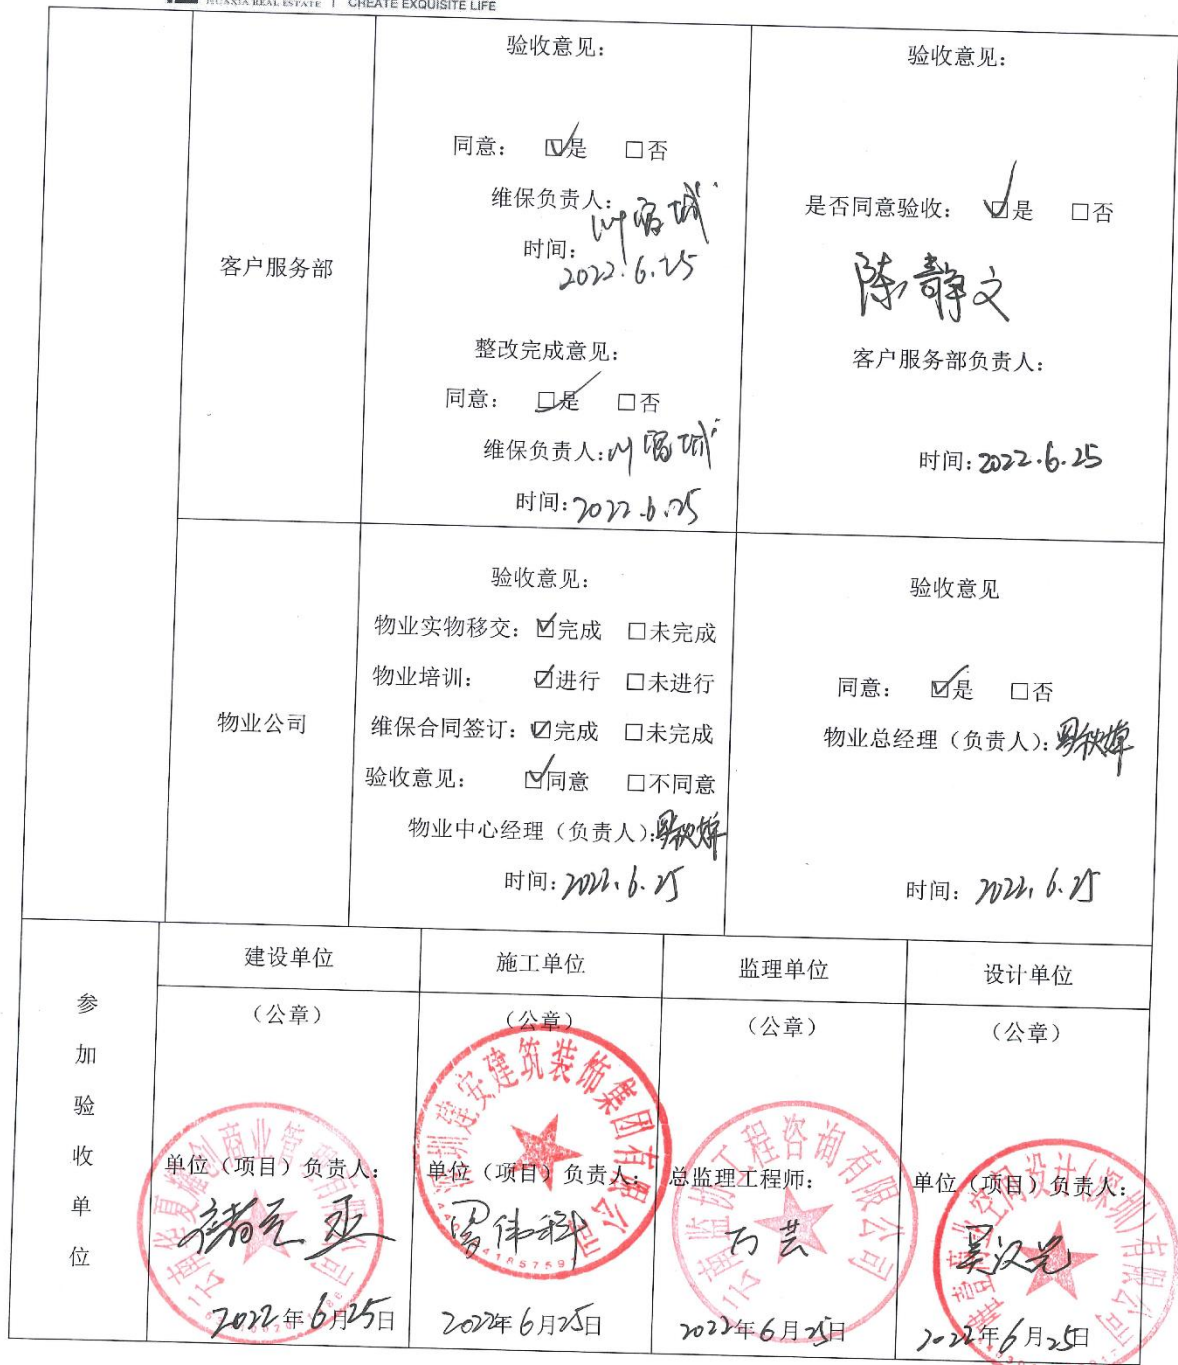 HUAXIA REAL ESTATE | CREATE EXQUISITE LIFE
客户服务部
验收意见：
同意： ☑是 □否
维保负责人：
时间：
2022.6.25
整改完成意见：
同意： ☑是 □否
维保负责人：
时间：2022.6.25
验收意见：
是否同意验收： ☑是 □否
陈静文
客户服务部负责人：
时间：2022.6.25
物业公司
验收意见：
物业实物移交： ☑完成 □未完成
物业培训： ☑进行 □未进行
维保合同签订： ☑完成 □未完成
验收意见： ☑同意 □不同意
物业中心经理（负责人）：
时间：2022.6.25
验收意见
同意： ☑是 □否
物业总经理（负责人）：
时间：2022.6.25
参加验收单位
建设单位
（公章）
单位（项目）负责人：
2022年6月25日
施工单位
（公章）
深圳建安建筑装饰集团有限公司
单位（项目）负责人：
2022年6月25日
监理单位
（公章）
工程咨询有限公司
总监理工程师：
万芸
2022年6月25日
设计单位
（公章）
空间设计(深圳)有限公司
单位（项目）负责人：
吴汉光
2022年6月25日